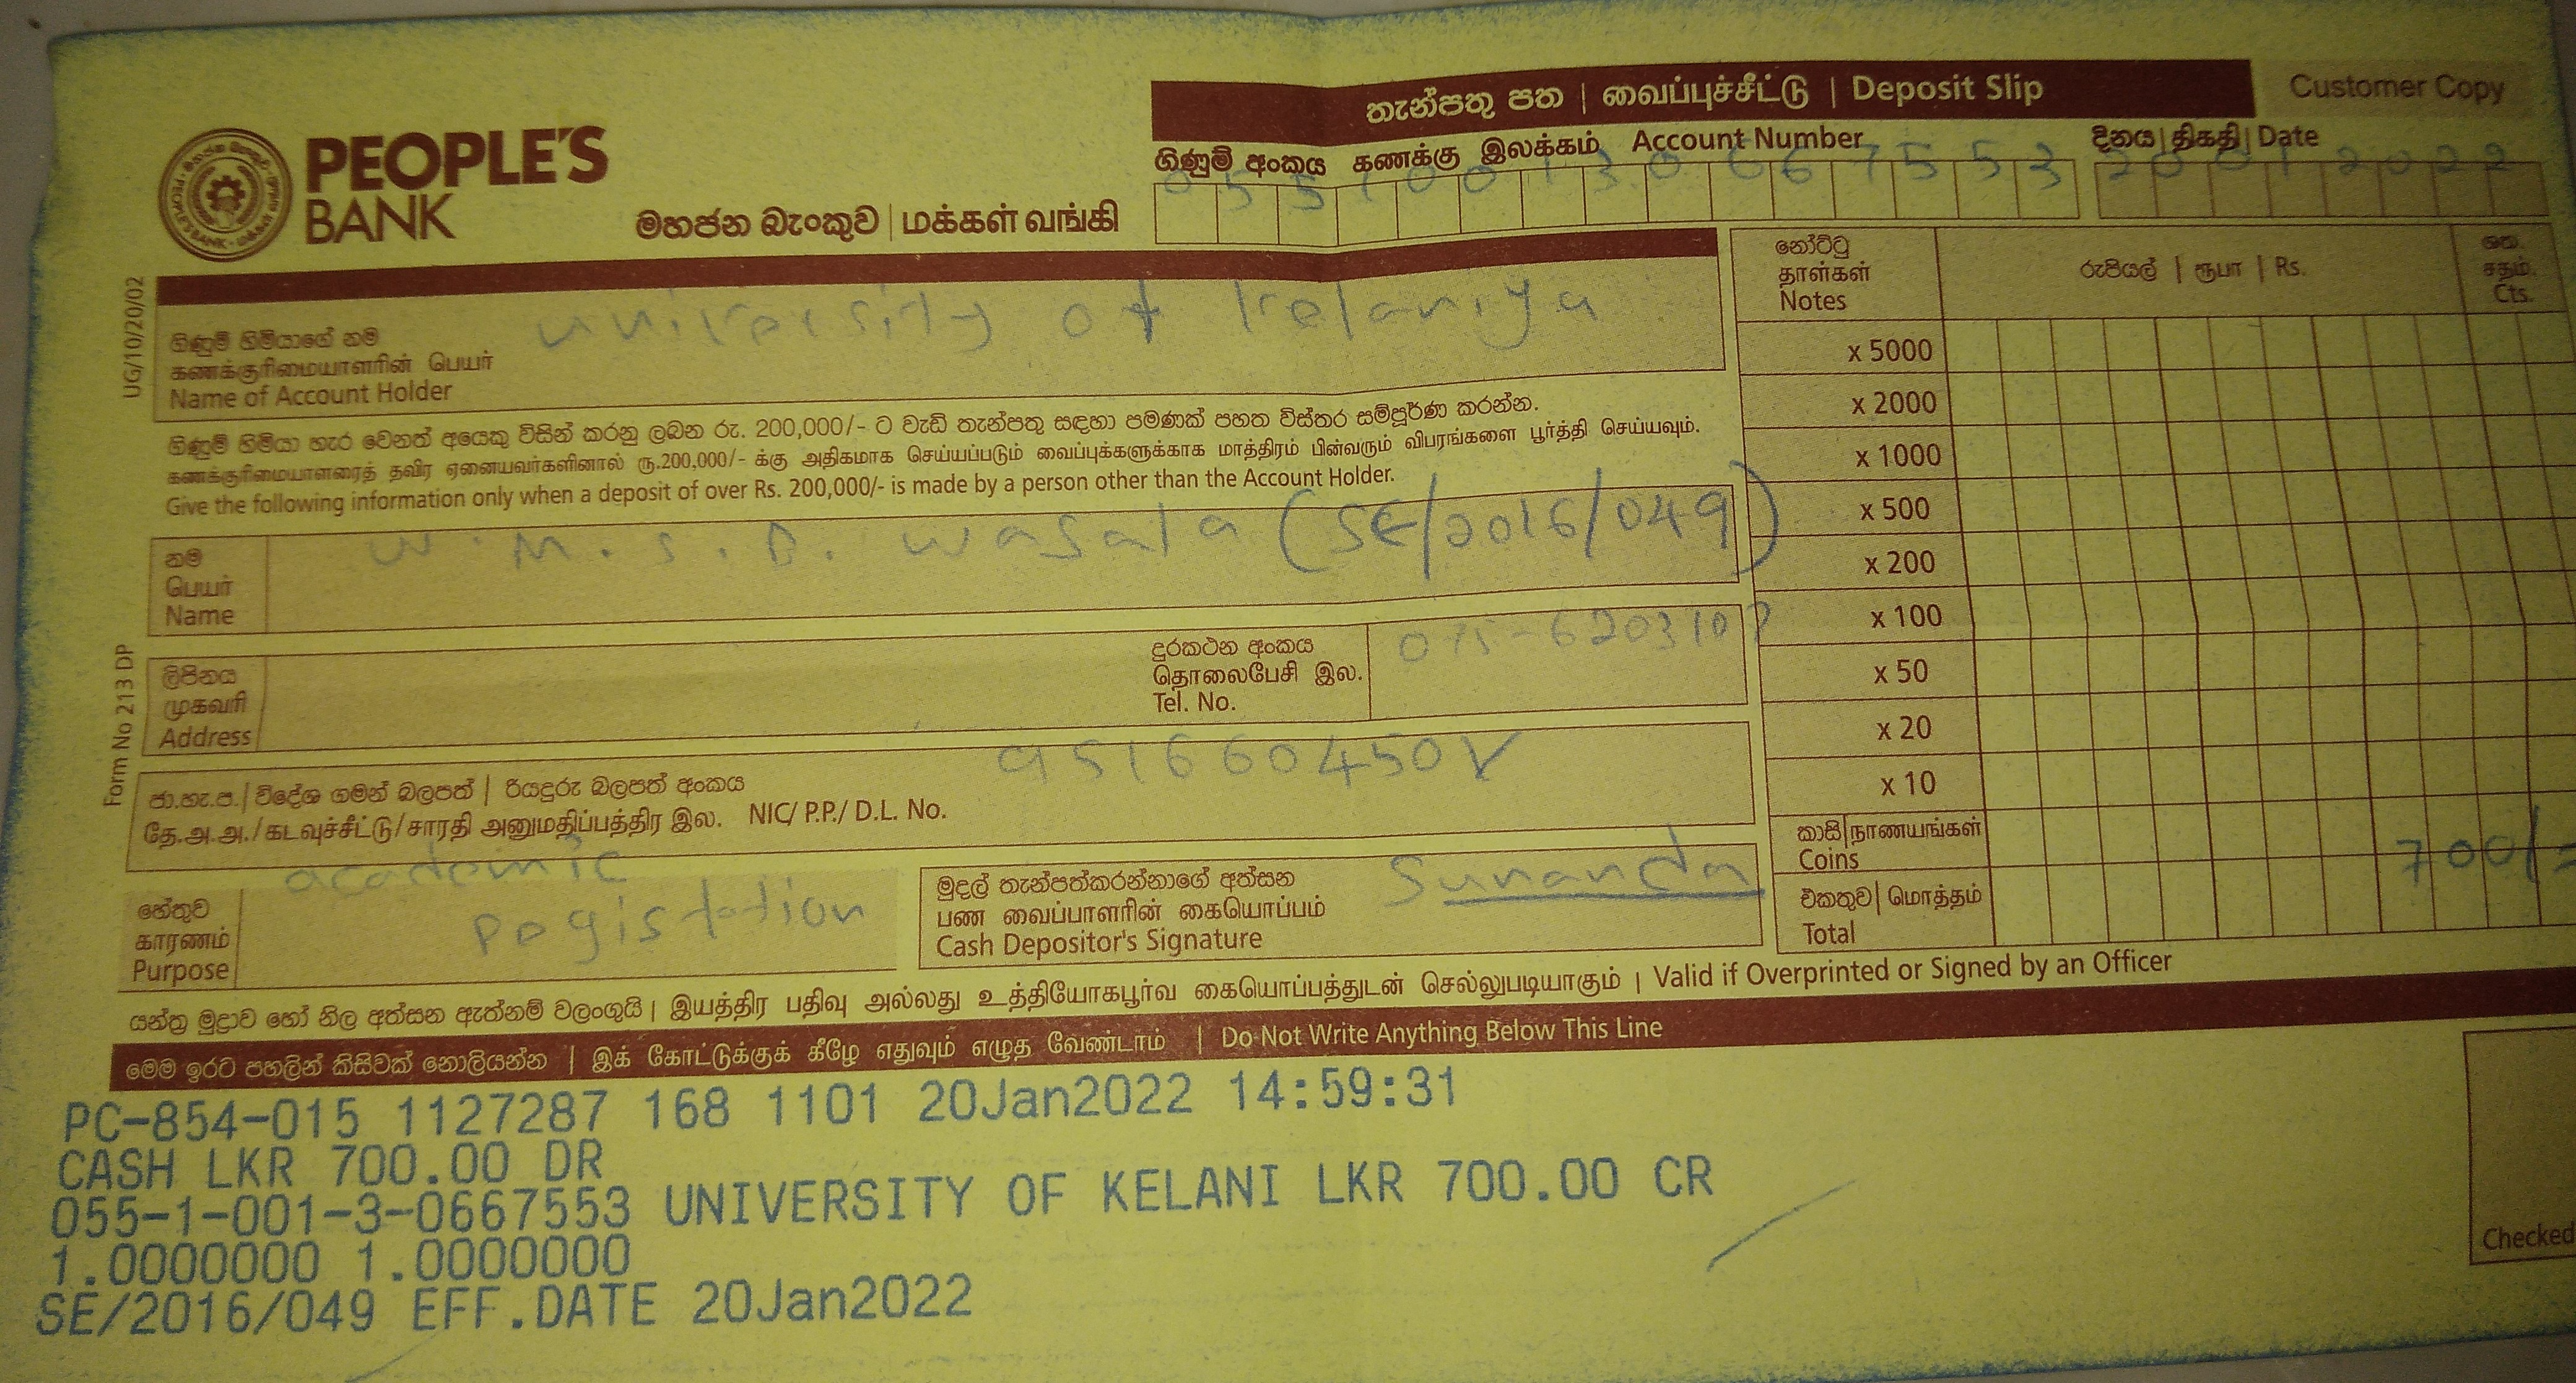 තැන්පතු පත | வைப்புச்சீட்டு | Deposit Slip
Customer Copy
PEOPLE'S
BANK
මහජන බැංකුව | மக்கள் வங்கி
ගිණුම් අංකය கணக்கு இலக்கம் Account Number
055100130667553
දිනය | திகதி | Date
20012022
UG/10/20/02
ගිණුම් හිමියාගේ නම
கணக்குரிமையாளரின் பெயர்
Name of Account Holder
University of Kelaniya
ගිණුම් හිමියා හැර වෙනත් අයෙකු විසින් කරනු ලබන රු. 200,000/- ට වැඩි තැන්පතු සඳහා පමණක් පහත විස්තර සම්පූර්ණ කරන්න.
கணக்குரிமையாளரைத் தவிர ஏனையவர்களினால் ரூ.200,000/- க்கு அதிகமாக செய்யப்படும் வைப்புக்களுக்காக மாத்திரம் பின்வரும் விபரங்களை பூர்த்தி செய்யவும்.
Give the following information only when a deposit of over Rs. 200,000/- is made by a person other than the Account Holder.
නම
பெயர்
Name
W.M.S.B. Wasala (SE/2016/049)
Form No 213 DP
ලිපිනය
முகவரி
Address
දුරකථන අංකය
தொலைபேசி இல.
Tel. No.
075-620310
ජා.හැ.ප. | විදේශ ගමන් බලපත් | රියදුරු බලපත් අංකය
தே.அ.அ./கடவுச்சீட்டு/சாரதி அனுமதிப்பத்திர இல. NIC/ P.P./ D.L. No.
951660450V
හේතුව
காரணம்
Purpose
academic
pogistation
මුදල් තැන්පත්කරන්නාගේ අත්සන
பண வைப்பாளரின் கையொப்பம்
Cash Depositor's Signature
Sunanda
නෝට්ටු
தாள்கள்
Notes
රුපියල් | ரூபா | Rs.
ශත.
சதம்.
Cts.
x 5000
x 2000
x 1000
x 500
x 200
x 100
x 50
x 20
x 10
කාසි | நாணயங்கள்
Coins
එකතුව | மொத்தம்
Total
700/=
යන්ත්‍ර මුද්‍රාව හෝ නිල අත්සන ඇත්නම් වලංගුයි | இயத்திர பதிவு அல்லது உத்தியோகபூர்வ கையொப்பத்துடன் செல்லுபடியாகும் | Valid if Overprinted or Signed by an Officer
මෙම ඉරට පහලින් කිසිවක් නොලියන්න | இக் கோட்டுக்குக் கீழே எதுவும் எழுத வேண்டாம் | Do Not Write Anything Below This Line
PC-854-015 1127287 168 1101 20Jan2022 14:59:31
CASH LKR 700.00 DR
055-1-001-3-0667553 UNIVERSITY OF KELANI LKR 700.00 CR
1.0000000 1.0000000
SE/2016/049 EFF.DATE 20Jan2022
Checked